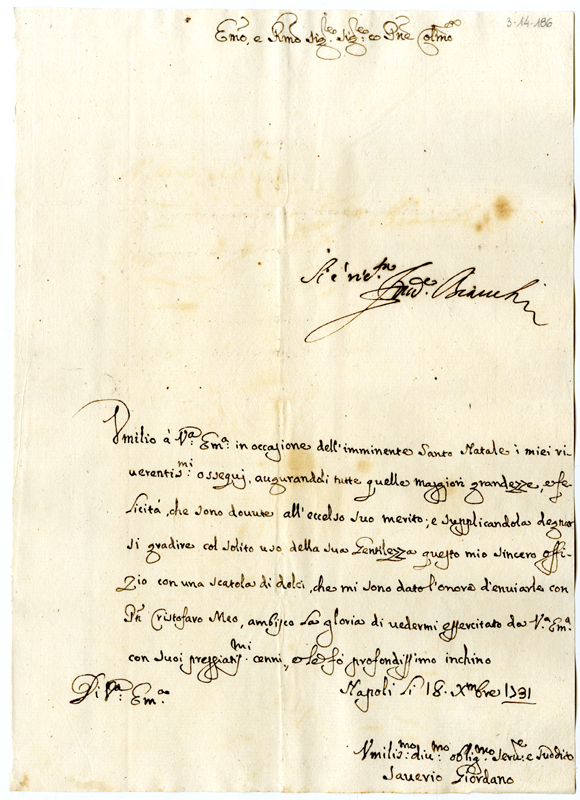 3-14-186
Emo, e Rmo Sigre Sigre e Pne Colmo
Bianchi
Vmilio à Va: Ema: in occasione dell'imminente Santo Natale i miei ri-
uerentismi: ossequj, augurandoli tutte quelle maggiori grandezze, e fe-
licità, che sono douute all'eccelso suo merito; e supplicandola degnar-
si gradire col solito uso della sua Gentilezza questo mio sincero offi-
zio con una scatola di dolci, che mi sono dato l'onore d'enuiarle con
Pñ Cristofaro Meo, ambisco la gloria di uedermi essercitato da Va: Ema:
con suoi preggiatismi: cenni, e le fo profondissimo inchino
Di Va: Ema:
Napoli li 18. Xmbre 1731
Vmilismo: diumo: obligmo: serue: e suddito
Sauerio Giordano